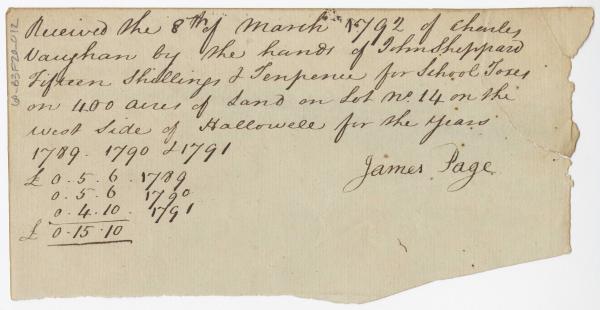 Received the 8th of March 1792 of Charles
Vaughan by the hands of John Sheppard
Fifteen Shillings & Tenpence for School Taxes
on 400 acres of Land on Lot no. 14 on the
West Side of Hallowell for the Years
1789. 1790 & 1791
£ 0.5.6. 1789
0.5.6 1790
0.4.10. 1791
£ 0.15.10
James Page